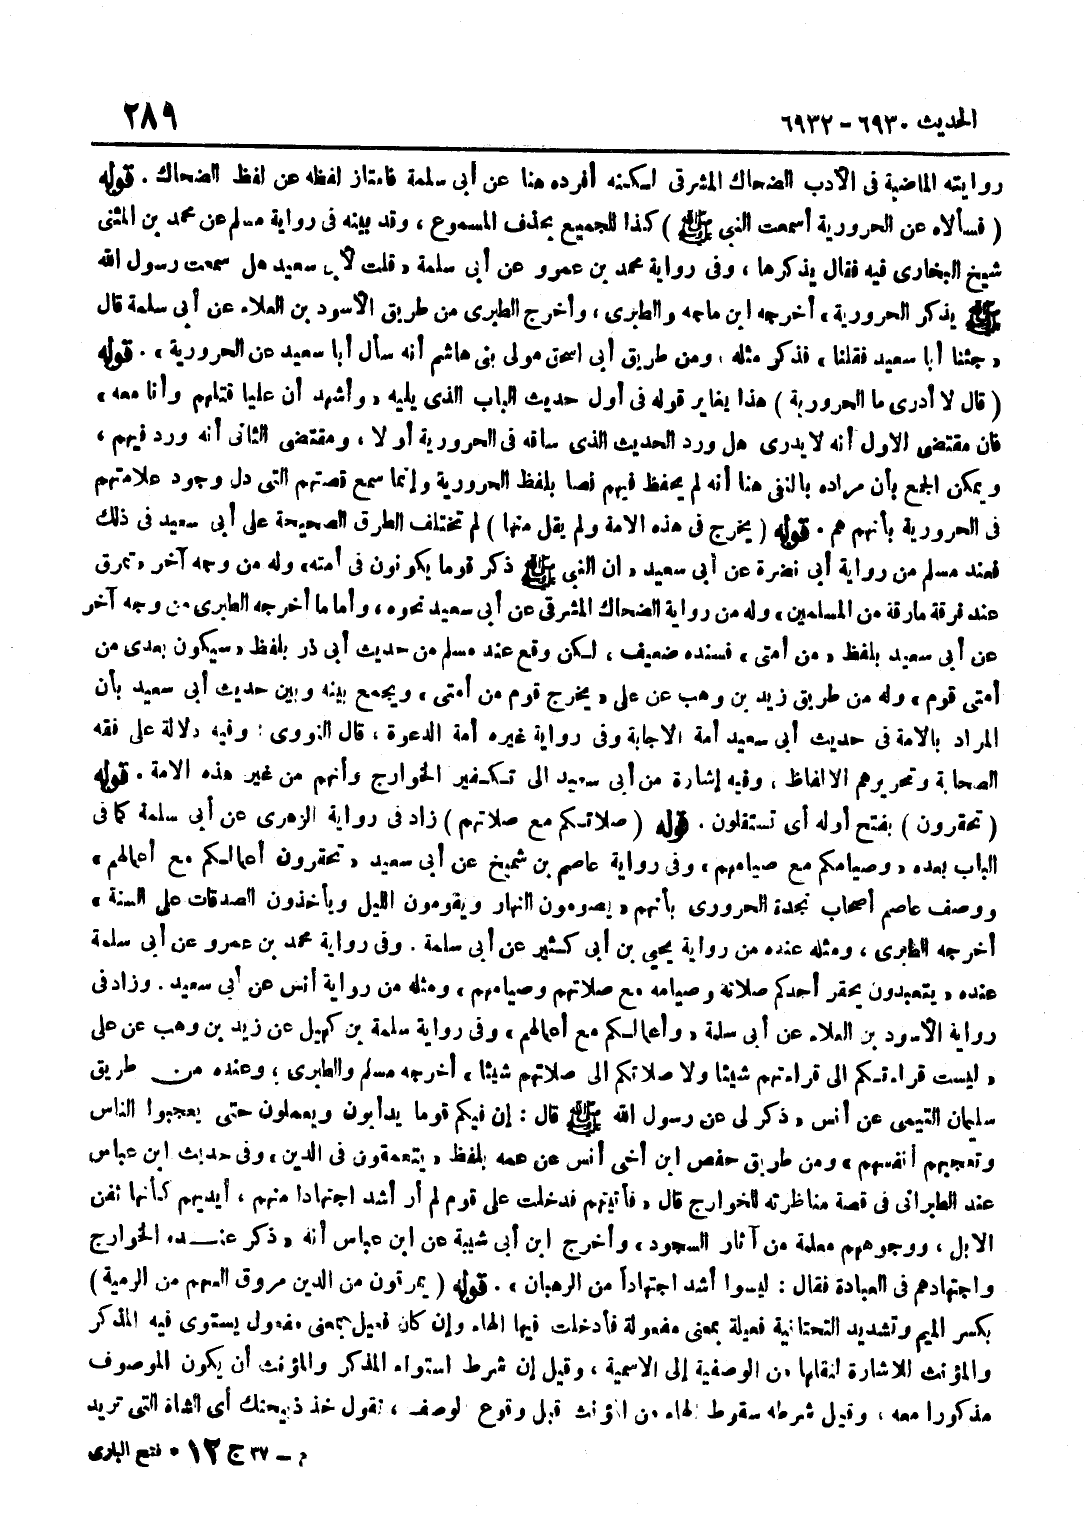 الحديث ٦٩٣٠ - ٦٩٣٢
٢٨٩
روايته الماضية فى الأدب الضحاك المشرقى لكنه أفرده هنا عن أبى سلمة فامتاز لفظه عن لفظ الضحاك . قوله
( فسألاه عن الحرورية أسمعت النبى ﷺ ) كذا للجميع بحذف المسموع ، وقد بينه فى رواية مسلم عن محمد بن المثنى
شيخ البخارى فيه فقال يذكرها ، وفى رواية محمد بن عمرو عن أبى سلمة « قلت لأبى سعيد هل سمعت رسول الله
ﷺ يذكر الحرورية » أخرجه ابن ماجه والطبرى ، وأخرج الطبرى من طريق الأسود بن العلاء عن أبى سلمة قال
« جئنا أبا سعيد فقلنا » فذكر مثله ، ومن طريق أبى اسحق مولى بنى هاشم أنه سأل أبا سعيد عن الحرورية » . قوله
( قال لا أدرى ما الحرورية ) هذا يغاير قوله فى أول حديث الباب الذى يليه « وأشهد أن عليا قتلهم وأنا معه »
فان مقتضى الاول أنه لا يدرى هل ورد الحديث الذى ساقه فى الحرورية أو لا ، ومقتضى الثانى أنه ورد فيهم ،
ويمكن الجمع بأن مراده بالنفى هنا أنه لم يحفظ فيهم نصا بلفظ الحرورية وإنما سمع قصتهم التى دل وجود علامتهم
فى الحرورية بأنهم هم . قوله ( يخرج فى هذه الامة ولم يقل منها ) لم تختلف الطرق الصحيحة على أبى سعيد فى ذلك
فعند مسلم من رواية أبى نضرة عن أبى سعيد « ان النبى ﷺ ذكر قوما يكونون فى أمته » وله من وجه آخر « تمرق
عند فرقة مارقة من المسلمين » وله من رواية الضحاك المشرقى عن أبى سعيد نحوه ، وأما ما أخرجه الطبرى من وجه آخر
عن أبى سعيد بلفظ « من أمتى » فسنده ضعيف ، لكن وقع عند مسلم من حديث أبى ذر بلفظ « سيكون بعدى من
أمتى قوم » وله من طريق زيد بن وهب عن على « يخرج قوم من أمتى » ويجمع بينه وبين حديث أبى سعيد بأن
المراد بالامة فى حديث أبى سعيد أمة الاجابة وفى رواية غيره أمة الدعوة ، قال النووى : وفيه دلالة على فقه
الصحابة وتحريرهم الالفاظ ، وفيه إشارة من أبى سعيد الى تكفير الخوارج وأنهم من غير هذه الامة . قوله
( تحقرون ) بفتح أوله أى تستقلون . قوله ( صلاتكم مع صلاتهم ) زاد فى رواية الزهرى عن أبى سلمة كما فى
الباب بعده « وصيامكم مع صيامهم » وفى رواية عاصم بن شميخ عن أبى سعيد « تحقرون أعمالكم مع أعمالهم »
ووصف عاصم أصحاب نجدة الحرورى بأنهم « يصومون النهار ويقومون الليل ويأخذون الصدقات على السنة »
أخرجه الطبرى ، ومثله عنده من رواية يحيى بن أبى كثير عن أبى سلمة . وفى رواية محمد بن عمرو عن أبى سلمة
عنده « يتعبدون يحقر أحدكم صلاته وصيامه مع صلاتهم وصيامهم » ومثله من رواية أنس عن أبى سعيد . وزاد فى
رواية الأسود بن العلاء عن أبى سلمة « وأعمالكم مع أعمالهم » وفى رواية سلمة بن كهيل عن زيد بن وهب عن على
« ليست قراءتكم الى قراءتهم شيئا ولا صلاتكم الى صلاتهم شيئا » أخرجه مسلم والطبرى ، وعنده من طريق
سليمان التيمى عن أنس « ذكر لى عن رسول الله ﷺ قال : إن فيكم قوما يدأبون ويعملون حتى يعجبوا الناس
وتعجبهم أنفسهم » ومن طريق حفص ابن أخى أنس عن عمه بلفظ « يتعمقون فى الدين » وفى حديث ابن عباس
عند الطبرانى فى قصة مناظرته للخوارج قال « فأتيتهم فدخلت على قوم لم أر أشد اجتهادا منهم ، أيديهم كأنها ثفن
الابل ، ووجوههم معلمة من آثار السجود » وأخرج ابن أبى شيبة عن ابن عباس أنه « ذكر عنـــده الخوارج
واجتهادهم فى العبادة فقال : ليسوا أشد اجتهاداً من الرهبان » . قوله ( يمرقون من الدين مروق السهم من الرمية )
بكسر الميم وتشديد التحتانية فعيلة بمعنى مفعولة فأدخلت فيها الهاء وإن كان فعيل بمعنى مفعول يستوى فيه المذكر
والمؤنث للاشارة لنقلها من الوصفية إلى الاسمية ، وقيل إن شرط استواء المذكر والمؤنث أن يكون الموصوف
مذكورا معه ، وقيل شرطه سقوط الهاء من المؤنث قبل وقوع الوصف ، تقول خذ ذبيحتك أى الشاة التى تريد
م - ٣٧ ج ١٢ * فتح البارى